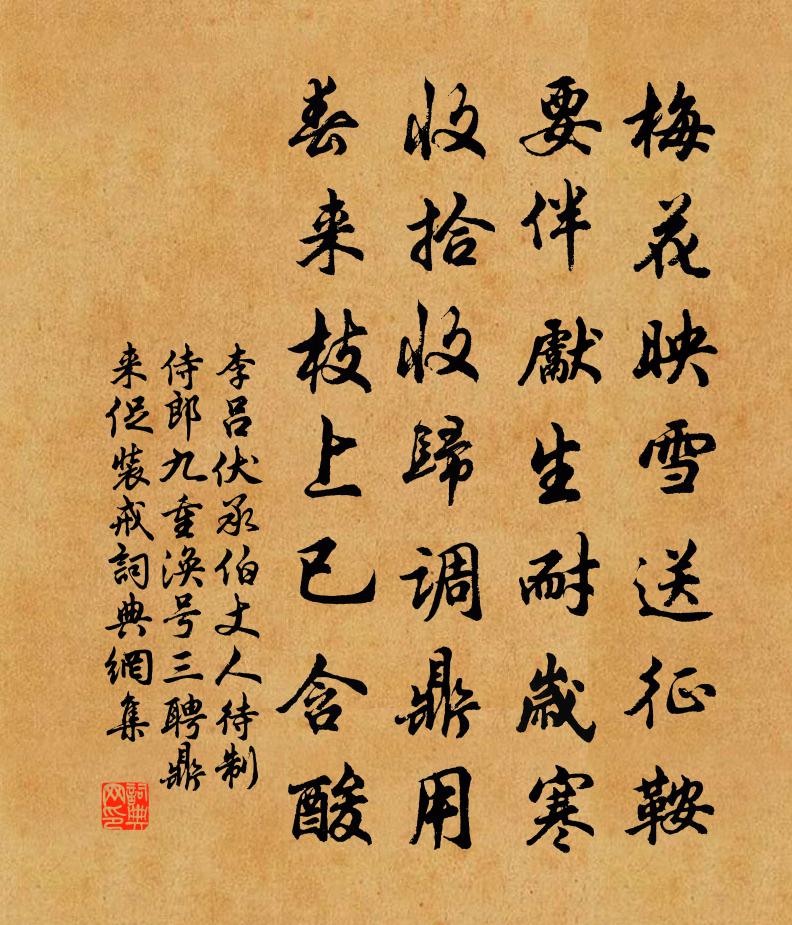 梅花映雪送征鞍
要伴獻生耐歲寒
收拾收歸调鼎用
春来枝上已含酸
李吕伏承伯丈人待制
侍郎九重涣号三聘鼎
来促裝戒詞典網集
詞典网印